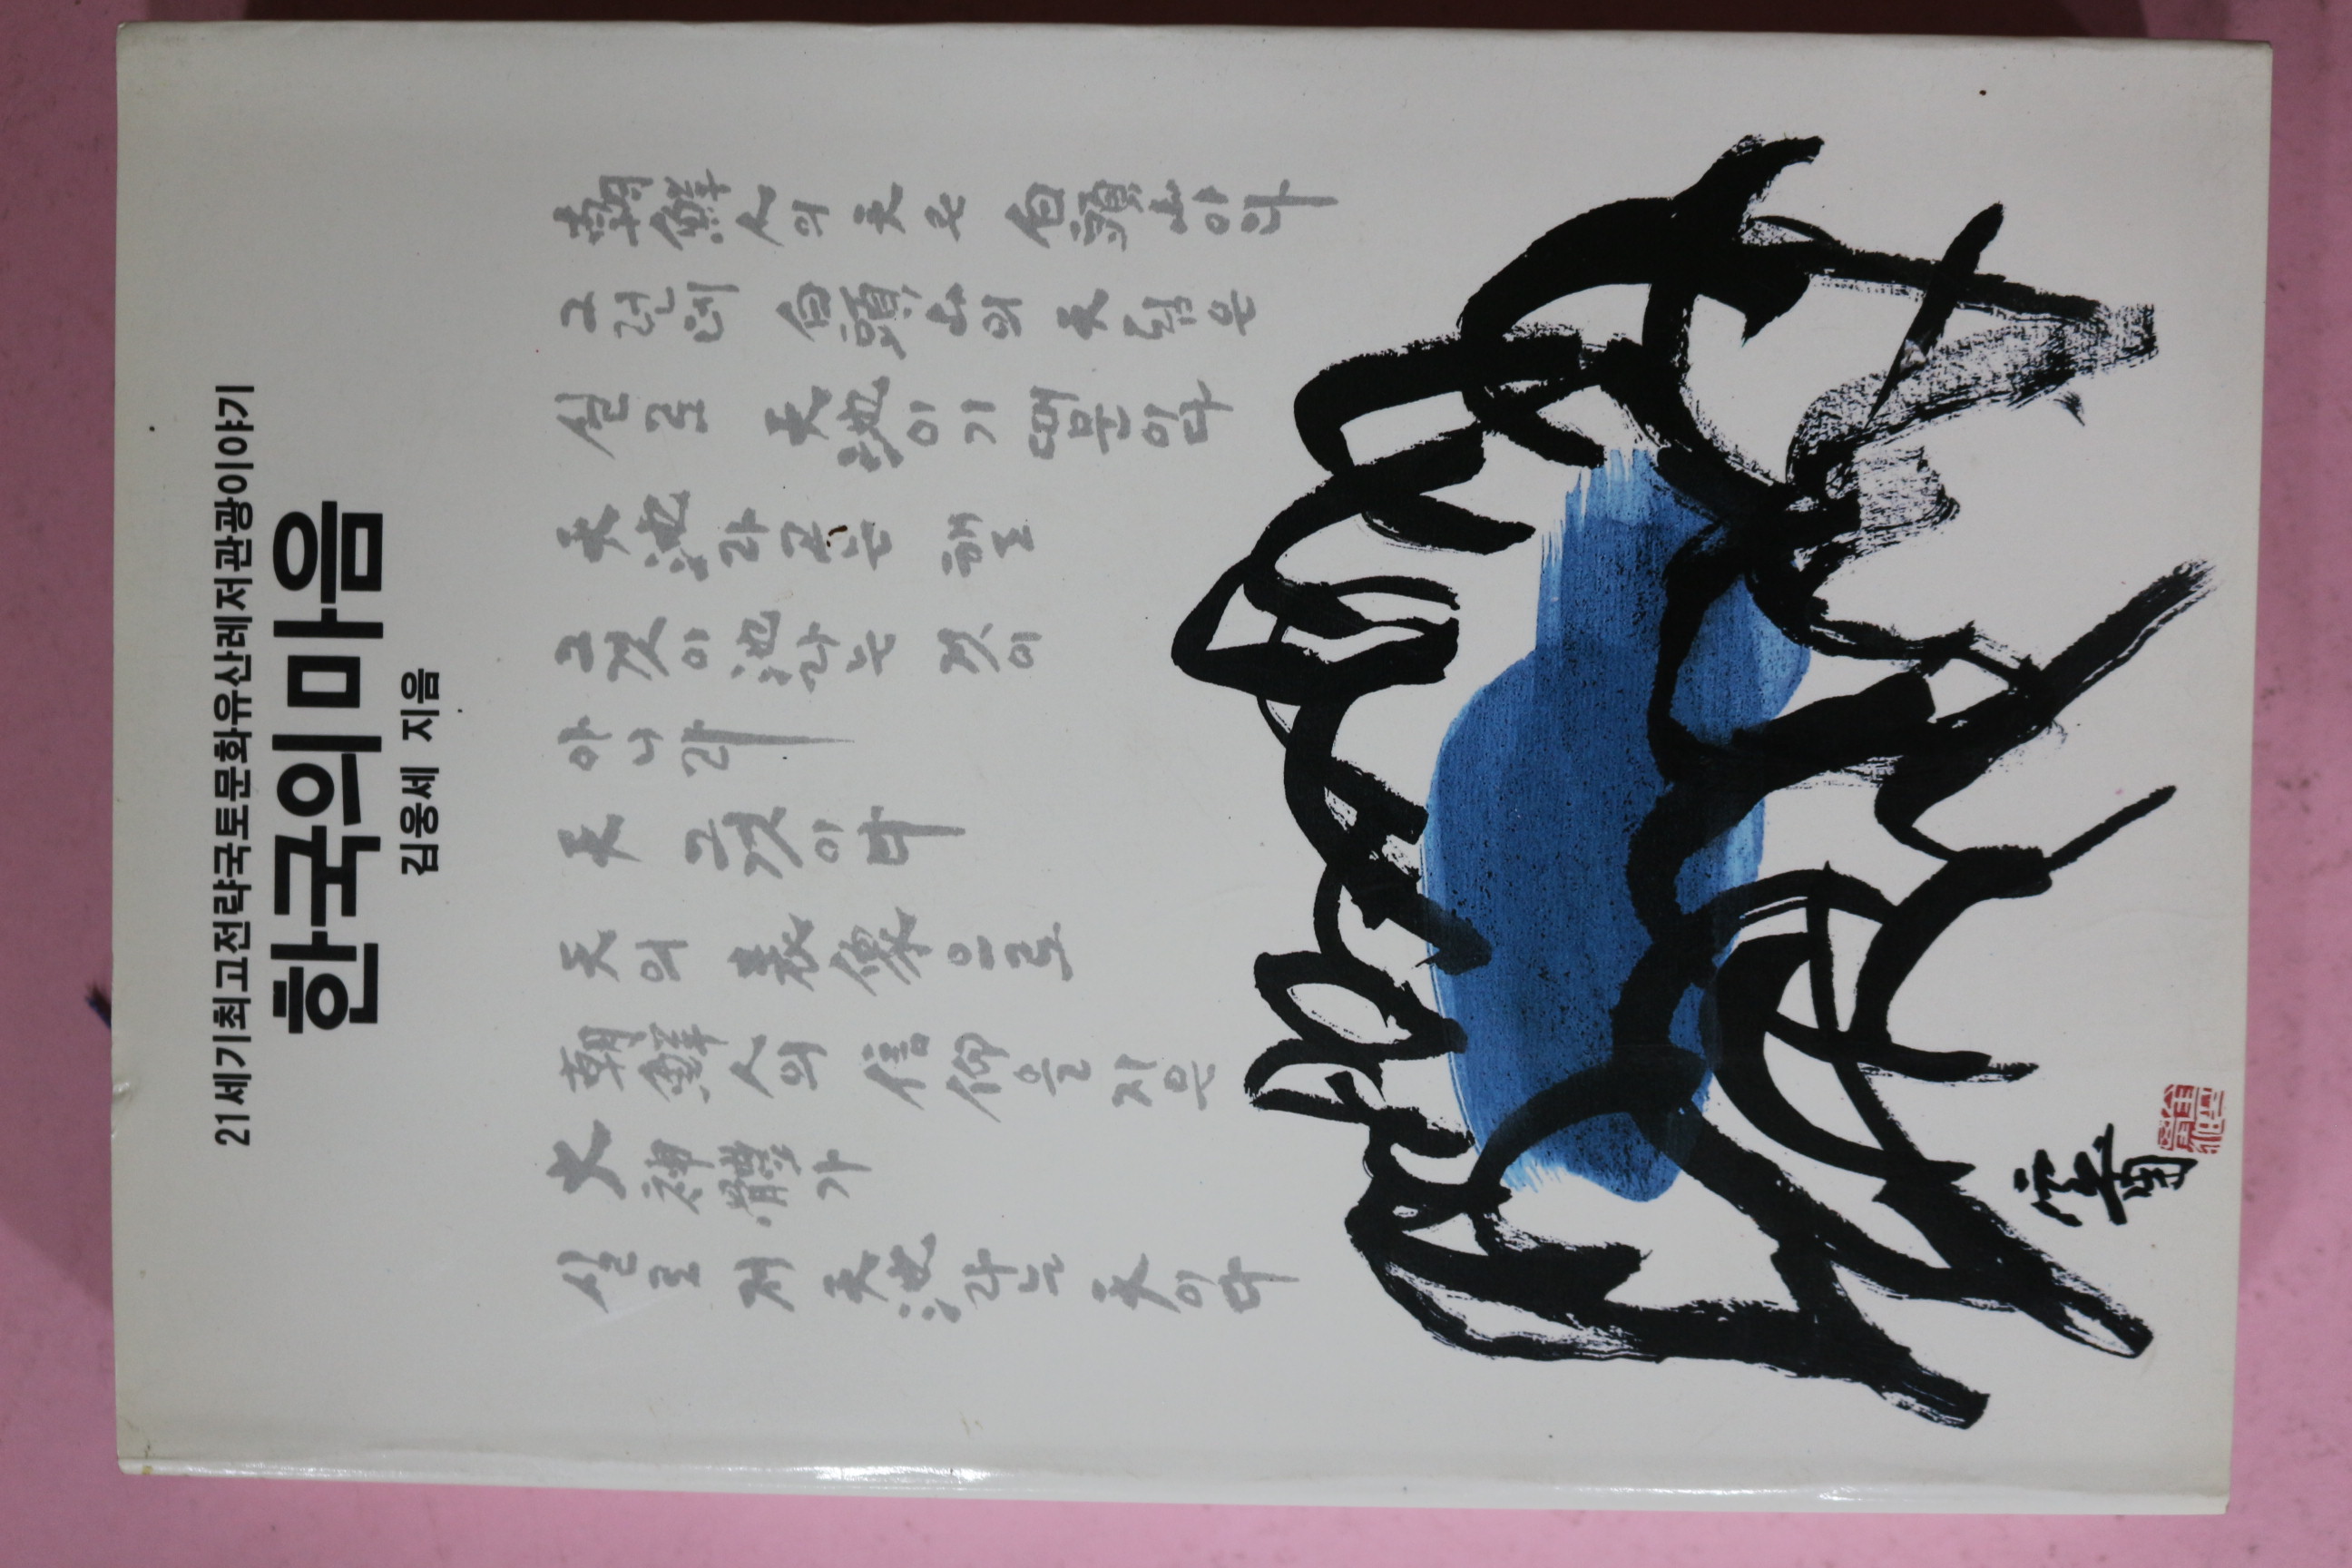 21세기최고전략국토문화유산레저관광이야기
한국의 마음
김웅세 지음
朝鮮人의 天은 白頭山이다
그런데 白頭山의 天됨은
실로 天池이기 때문이다
天池라고는 해도
그것이 池라는 것이
아니라
天 그것이다
天의 表象으로
朝鮮人의 信仰을 지은
大神體가
실로 저 天池라는 天이다